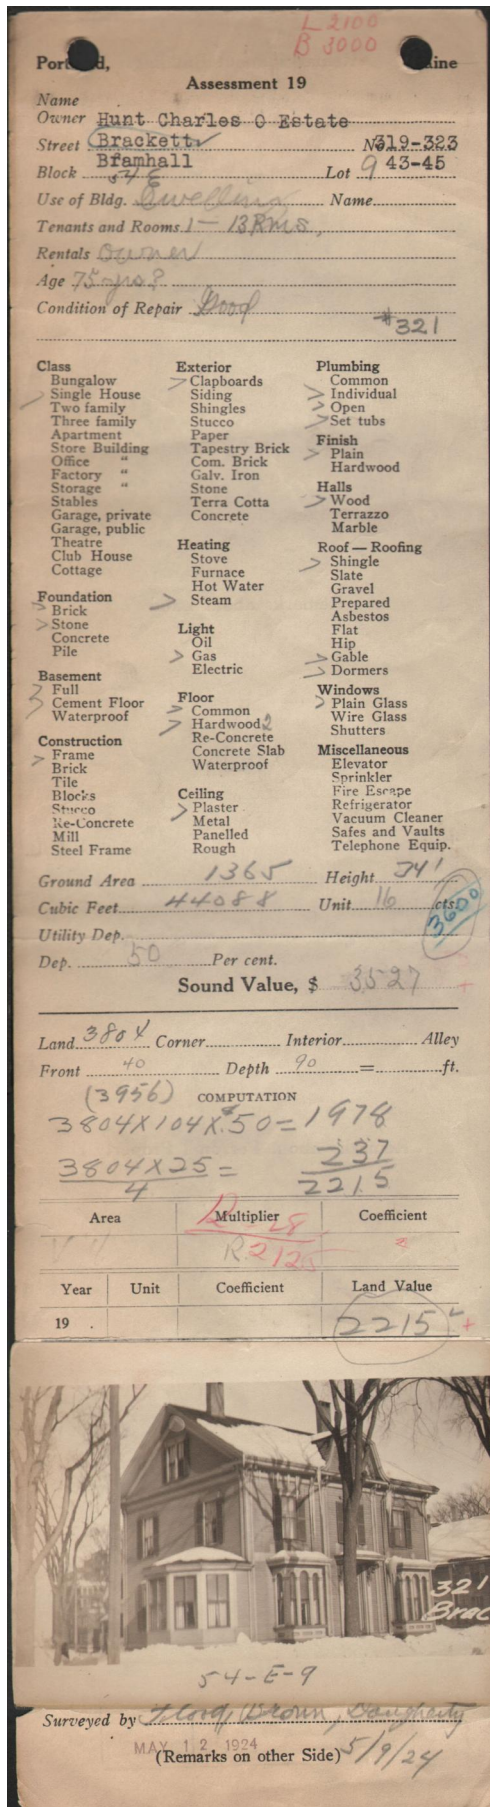 L 2100
B 3000
Portland, Maine
Assessment 19
Name
Owner Hunt Charles O Estate
Street Brackett No 319-323
Bramhall 43-45
Block 54 E Lot 9
Use of Bldg. Dwelling Name
Tenants and Rooms 1 - 13 Rms,
Rentals Owner
Age 75 yrs?
Condition of Repair Good
#321
Class
Bungalow
Single House
Two family
Three family
Apartment
Store Building
Office "
Factory "
Storage "
Stables
Garage, private
Garage, public
Theatre
Club House
Cottage
Foundation
Brick
Stone
Concrete
Pile
Basement
Full
Cement Floor
Waterproof
Construction
Frame
Brick
Tile
Blocks
Stucco
Re-Concrete
Mill
Steel Frame
Exterior
Clapboards
Siding
Shingles
Stucco
Paper
Tapestry Brick
Com. Brick
Galv. Iron
Stone
Terra Cotta
Concrete
Heating
Stove
Furnace
Hot Water
Steam
Light
Oil
Gas
Electric
Floor
Common
Hardwood 2
Re-Concrete
Concrete Slab
Waterproof
Ceiling
Plaster
Metal
Panelled
Rough
Plumbing
Common
Individual
Open
Set tubs
Finish
Plain
Hardwood
Halls
Wood
Terrazzo
Marble
Roof — Roofing
Shingle
Slate
Gravel
Prepared
Asbestos
Flat
Hip
Gable
Dormers
Windows
Plain Glass
Wire Glass
Shutters
Miscellaneous
Elevator
Sprinkler
Fire Escape
Refrigerator
Vacuum Cleaner
Safes and Vaults
Telephone Equip.
Ground Area 1365 Height 34'
Cubic Feet 44088 Unit 16 cts.
3600
Utility Dep.
Dep. 50 Per cent.
Sound Value, $ 3527 +
Land 3804 Corner Interior Alley
Front 40 Depth 90 = ft.
(3956) COMPUTATION
3804 X 104 X .50 = 1978
3804 X 25 = 237
4 2215
Area Multiplier Coefficient
R 2125
Year Unit Coefficient Land Value
19 . 2215 +
321
Brac
54-E-9
Surveyed by Flood, Brown, Dougherty
MAY 12 1924
(Remarks on other Side) 5/9/24